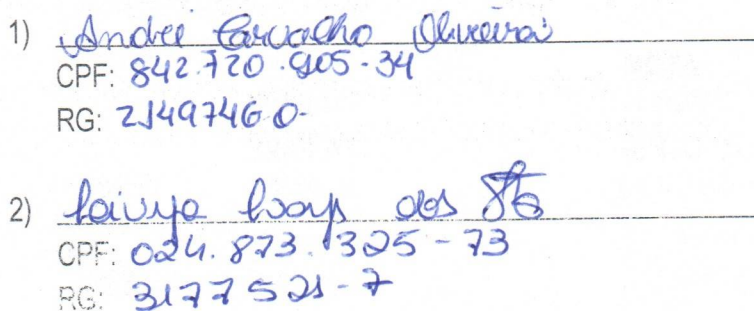 1) Andrei Carvalho Oliveira
CPF: 842.720.905-34
RG: 21497460-
2) dos
CPF: 024.873.325-73
RG: 3177521-7